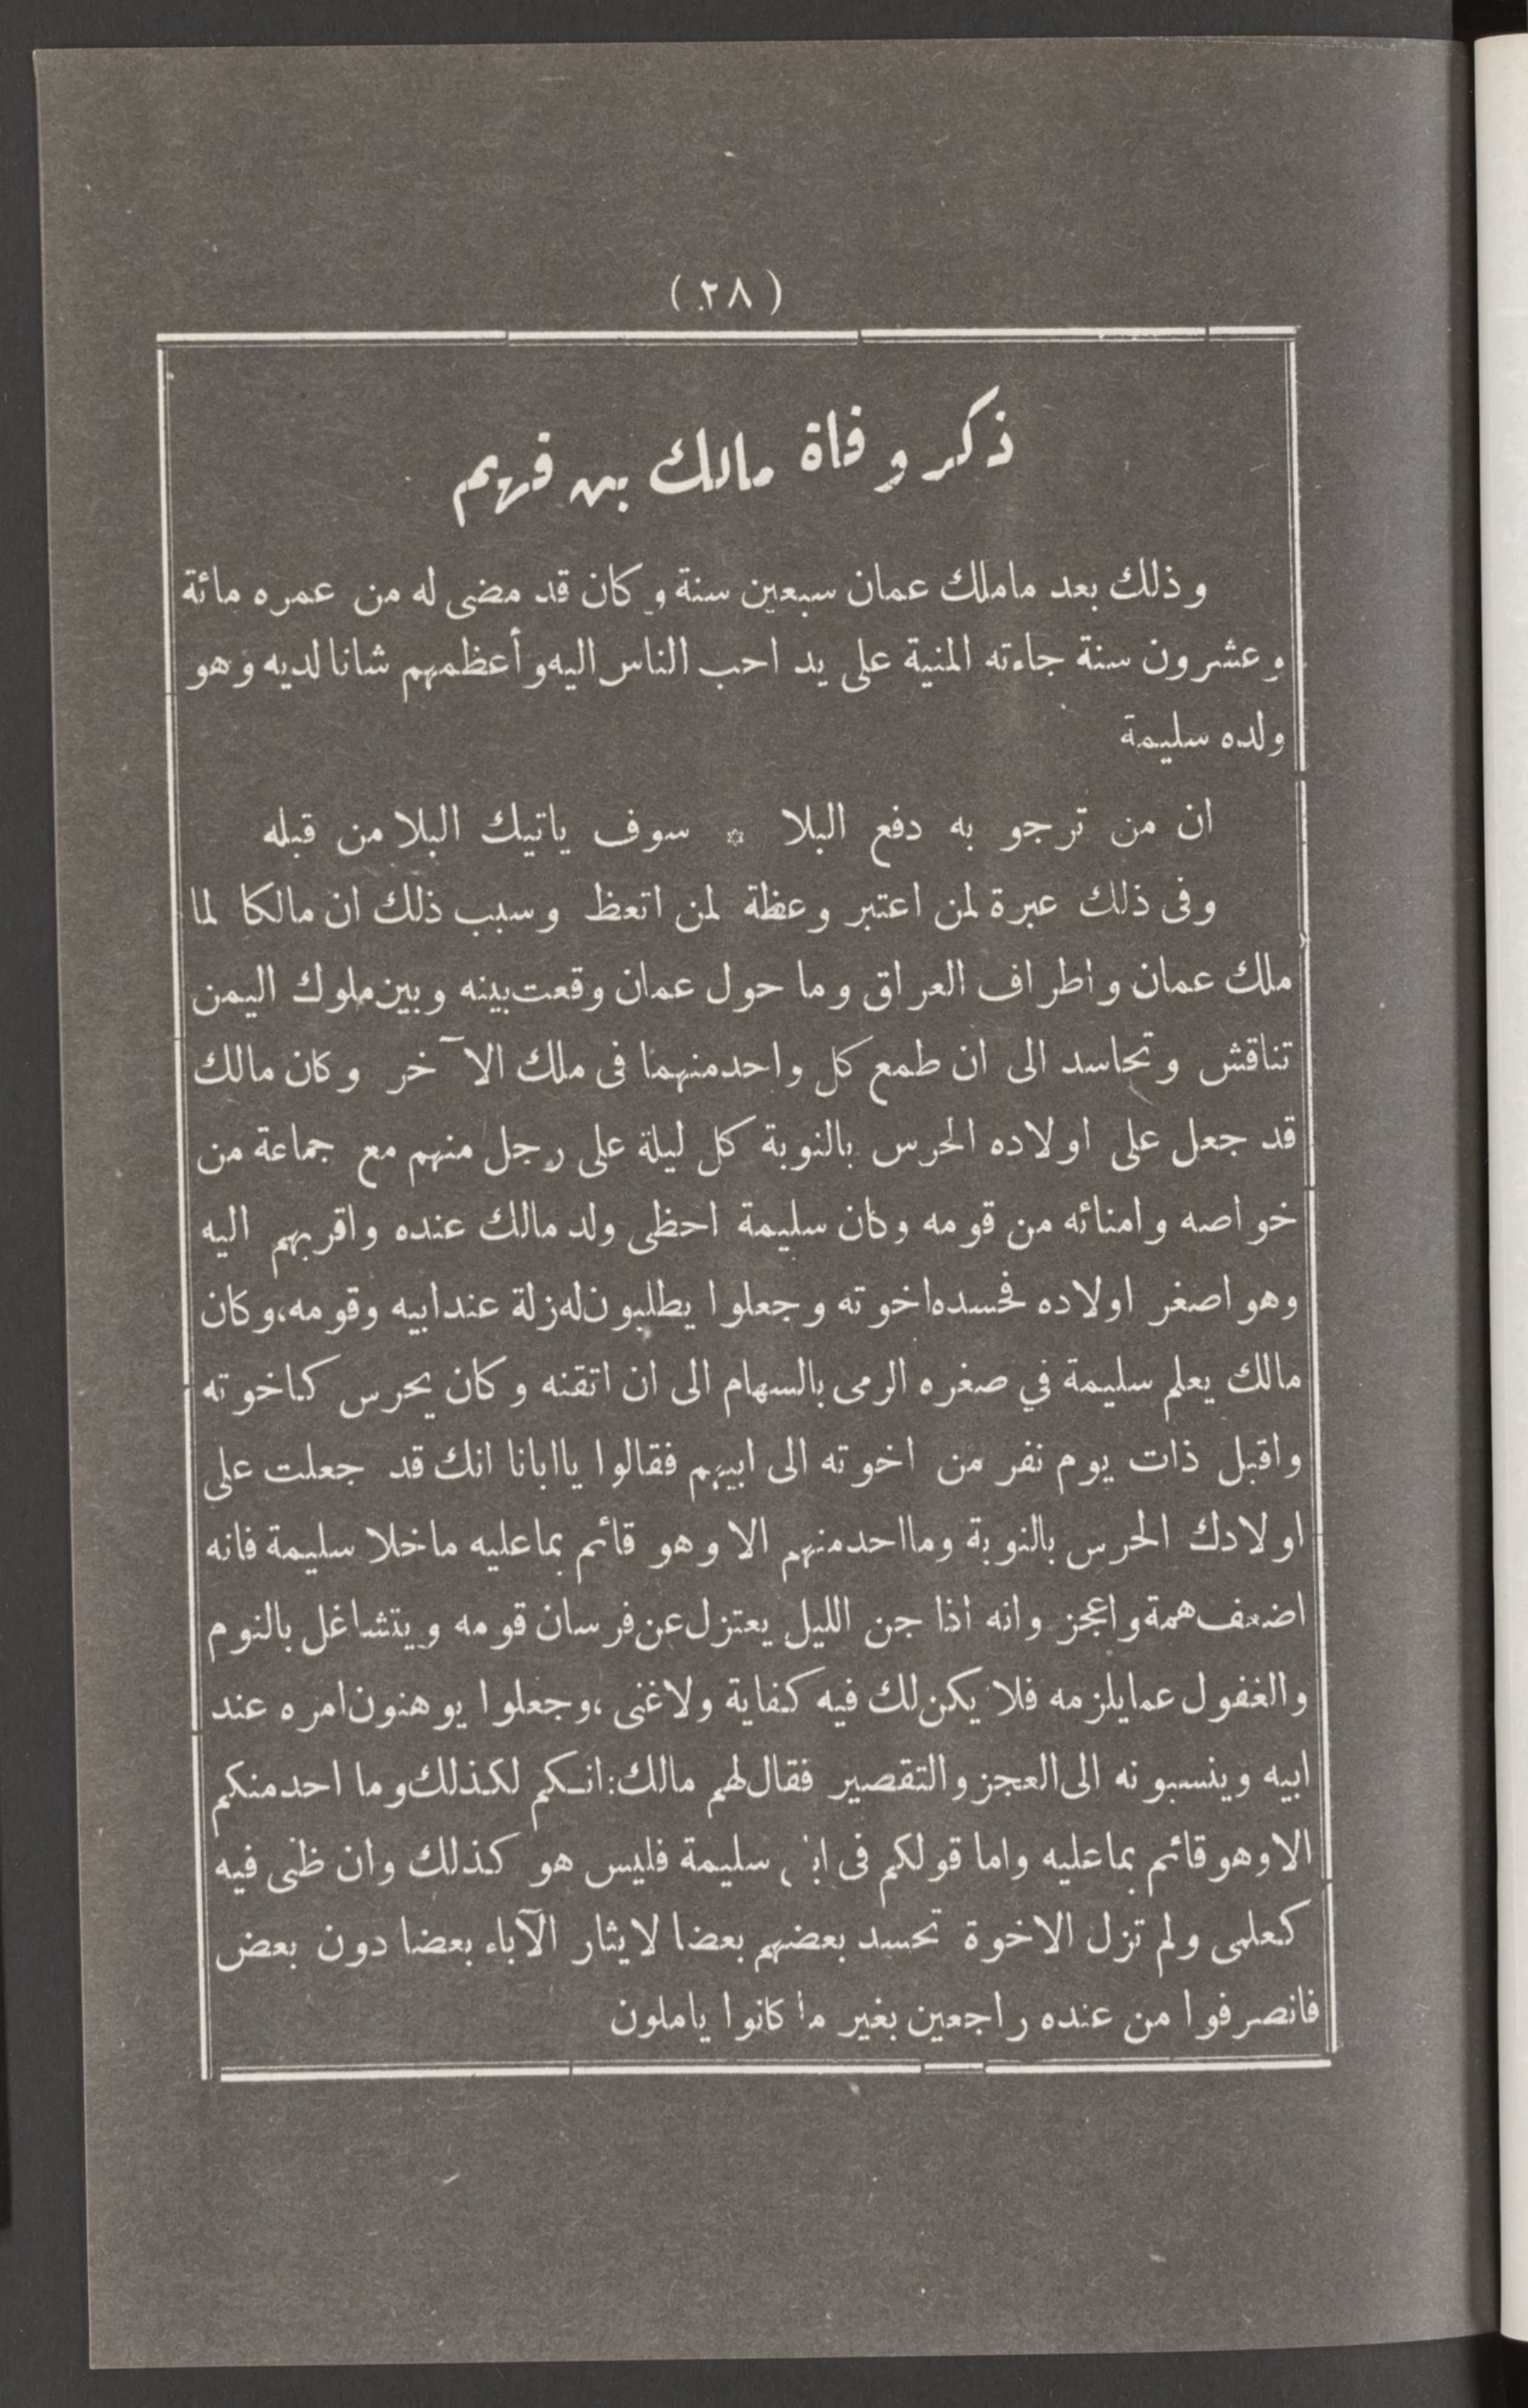 (٢٨)
ذكر وفاة مالك بن فهم
وذلك بعد ماملك عمان سبعين سنة وكان قد مضى له من عمره مائة
وعشرون سنة جاءته المنية على يد احب الناس اليه وأعظمهم شانا لديه وهو
ولده سليمة
ان من ترجو به دفع البلا * سوف ياتيك البلا من قبله
وفى ذلك عبرة لمن اعتبر وعظة لمن اتعظ وسبب ذلك ان مالكا لما
ملك عمان واطراف العراق وما حول عمان وقعت بينه وبين ملوك اليمن
تناقش وتحاسد الى ان طمع كل واحد منهما فى ملك الآخر وكان مالك
قد جعل على اولاده الحرس بالنوبة كل ليلة على رجل منهم مع جماعة من
خواصه وامنائه من قومه وكان سليمة احظى ولد مالك عنده واقربهم اليه
وهو اصغر اولاده فحسده اخوته وجعلوا يطلبون له زلة عند ابيه وقومه، وكان
مالك يعلم سليمة في صغره الرمى بالسهام الى ان اتقنه وكان يحرس كاخوته
واقبل ذات يوم نفر من اخوته الى ابيهم فقالوا ياابانا انك قد جعلت على
اولادك الحرس بالنوبة وما احد منهم الا وهو قائم بما عليه ما خلا سليمة فانه
اضعف همة واعجز وانه اذا جن الليل يعتزل عن فرسان قومه ويتشاغل بالنوم
والغفول عما يلزمه فلا يكن لك فيه كفاية ولا غنى، وجعلوا يوهنون امره عند
ابيه وينسبونه الى العجز والتقصير فقال لهم مالك: انكم لكذلك وما احد منكم
الا وهو قائم بما عليه واما قولكم فى ابنى سليمة فليس هو كذلك وان ظنى فيه
كعلمى ولم تزل الاخوة تحسد بعضهم بعضا لايثار الآباء بعضا دون بعض
فانصرفوا من عنده راجعين بغير ما كانوا ياملون